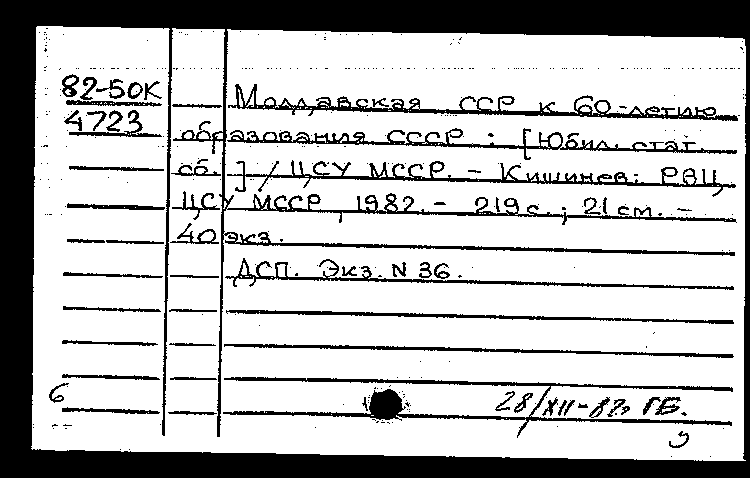 82-50К
4723
Молдавская ССР к 60-летию
образования СССР : [Юбил. стат.
сб.] / ЦСУ МССР. - Кишинев: РВЦ
ЦСУ МССР, 1982. - 219 с. ; 21 см. -
40 экз.
ДСП. Экз. N 36.
6
28/XII-82г. ГБ.